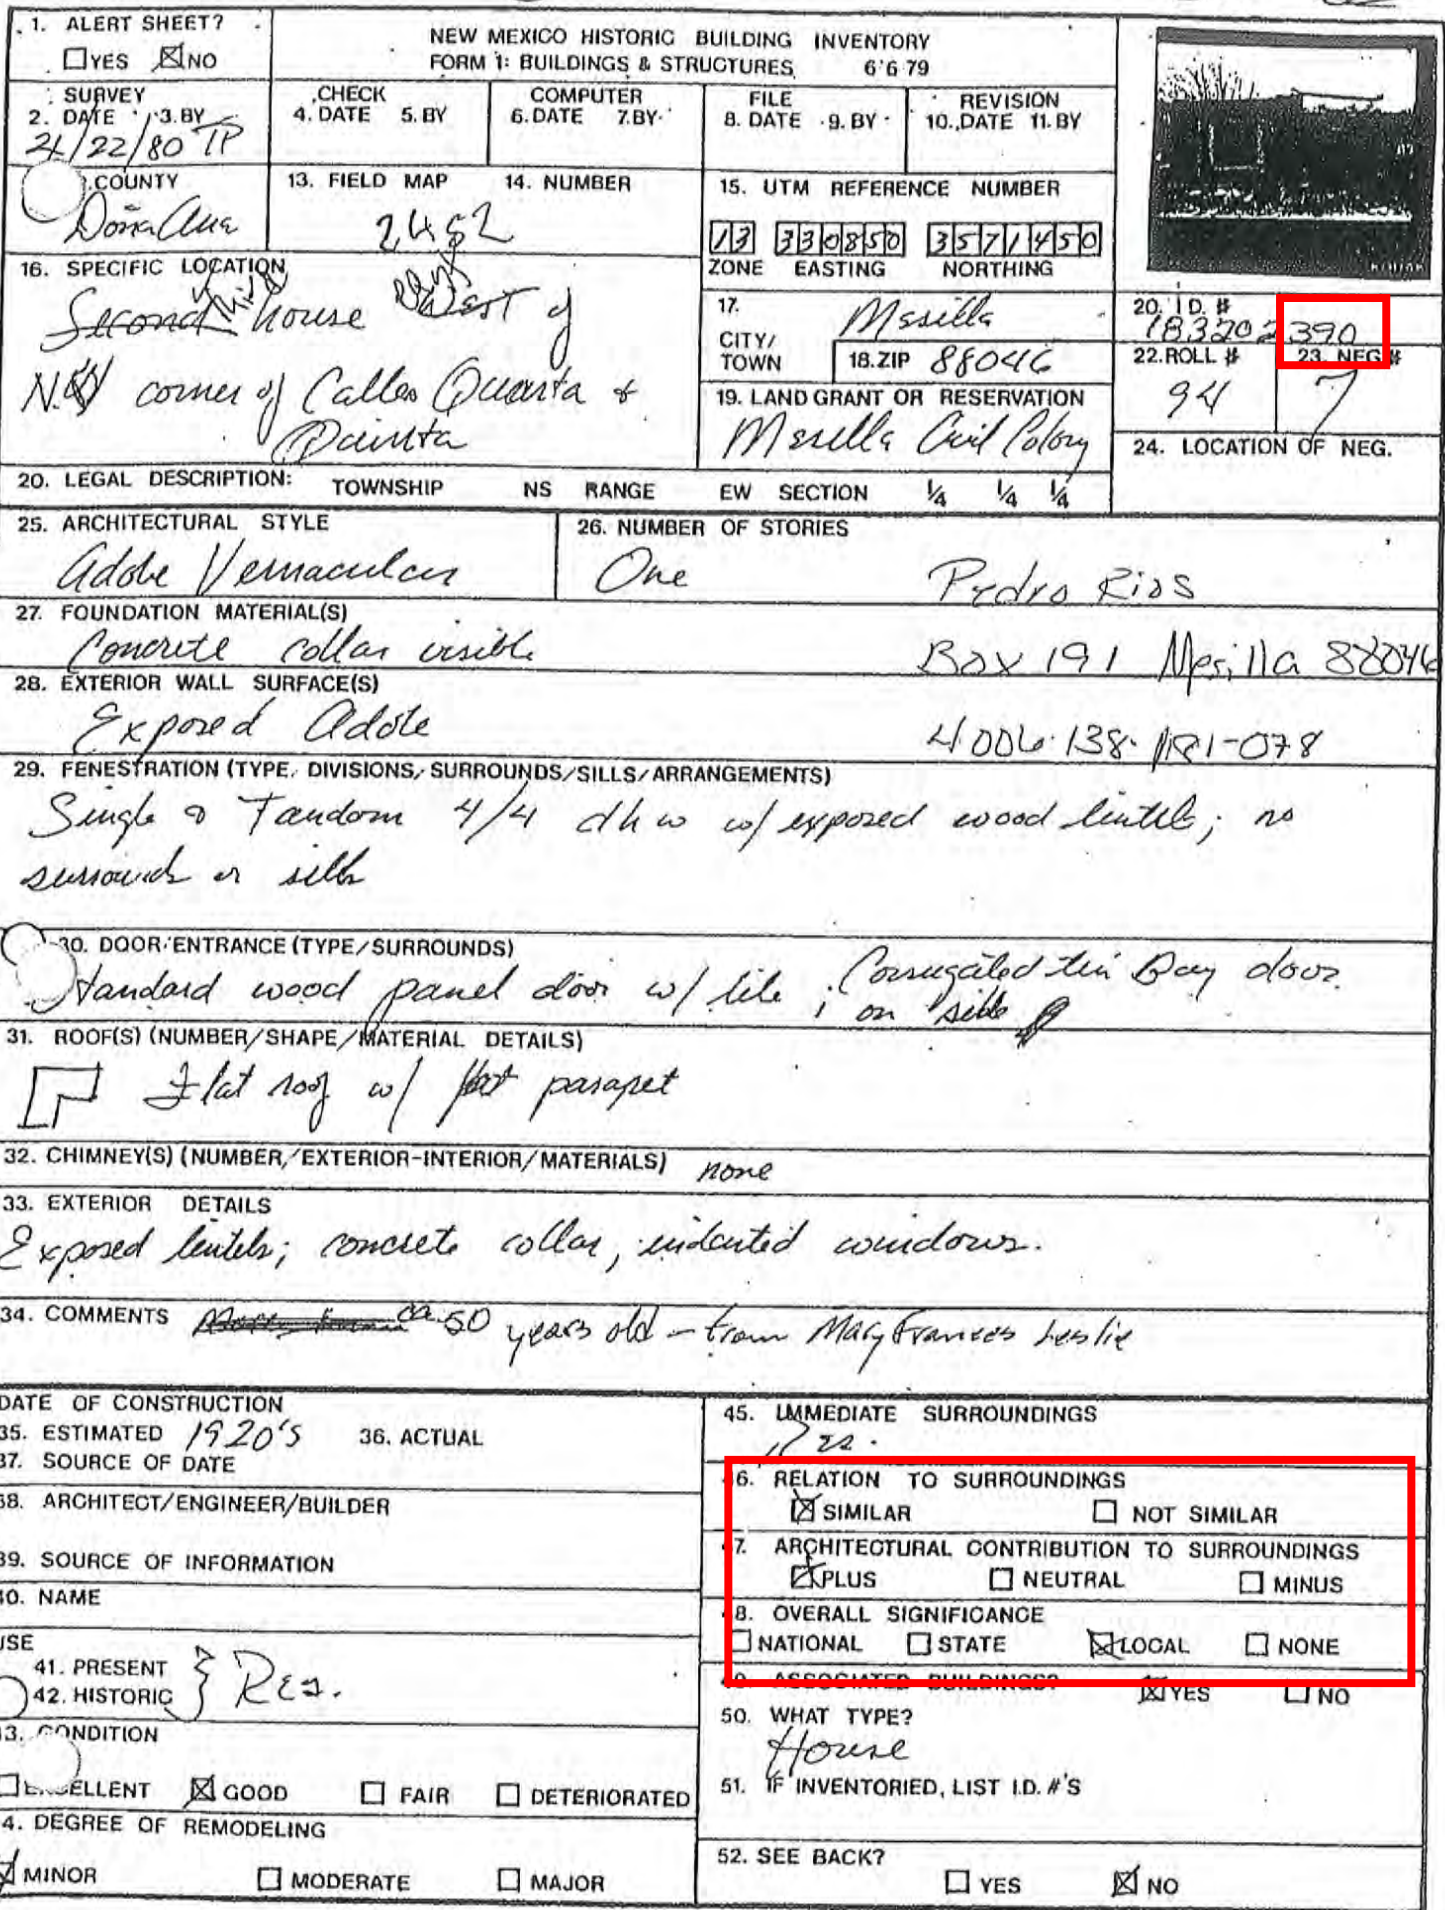 1. ALERT SHEET?
☐YES ☒NO
NEW MEXICO HISTORIC BUILDING INVENTORY
FORM 1: BUILDINGS & STRUCTURES 6'6 79
SURVEY
2. DATE 3. BY
4/22/80 TP
CHECK
4. DATE 5. BY
COMPUTER
6. DATE 7. BY
FILE
8. DATE 9. BY
REVISION
10. DATE 11. BY
COUNTY
Doña Ana
13. FIELD MAP 14. NUMBER
2452
15. UTM REFERENCE NUMBER
13 330850 3571450
ZONE EASTING NORTHING
16. SPECIFIC LOCATION
Second Third house West of
N.W. corner of Calles Quarta &
Quinta
17. CITY/TOWN
Mesilla
18. ZIP 88046
19. LAND GRANT OR RESERVATION
Mesilla Civil Colony
20. I.D. #
183202390
22. ROLL # 23. NEG #
94 7
24. LOCATION OF NEG.
20. LEGAL DESCRIPTION: TOWNSHIP NS RANGE EW SECTION ¼ ¼ ¼
25. ARCHITECTURAL STYLE
Adobe Vernacular
26. NUMBER OF STORIES
One
Pedro Rios
27. FOUNDATION MATERIAL(S)
Concrete collar visible
Box 191 Mesilla 88046
28. EXTERIOR WALL SURFACE(S)
Exposed Adobe
4006-138-181-078
29. FENESTRATION (TYPE, DIVISIONS, SURROUNDS/SILLS/ARRANGEMENTS)
Single & Tandom 4/4 dhw w/ exposed wood lintels; no
surrounds or sills
30. DOOR/ENTRANCE (TYPE/SURROUNDS)
Standard wood panel door w/ lite; Corrugated tin Bay door
on side
31. ROOF(S) (NUMBER/SHAPE/MATERIAL DETAILS)
Flat roof w/ parapet
32. CHIMNEY(S) (NUMBER/EXTERIOR-INTERIOR/MATERIALS) none
33. EXTERIOR DETAILS
Exposed lintels; concrete collar, indented windows.
34. COMMENTS ca. 50 years old – from Mary Frances Leslie
DATE OF CONSTRUCTION
35. ESTIMATED 1920's 36. ACTUAL
37. SOURCE OF DATE
38. ARCHITECT/ENGINEER/BUILDER
39. SOURCE OF INFORMATION
40. NAME
USE
41. PRESENT
42. HISTORIC
Res.
43. CONDITION
☐EXCELLENT ☒GOOD ☐ FAIR ☐ DETERIORATED
44. DEGREE OF REMODELING
☒MINOR ☐ MODERATE ☐ MAJOR
45. IMMEDIATE SURROUNDINGS
Res.
46. RELATION TO SURROUNDINGS
☒SIMILAR ☐ NOT SIMILAR
47. ARCHITECTURAL CONTRIBUTION TO SURROUNDINGS
☒PLUS ☐ NEUTRAL ☐ MINUS
48. OVERALL SIGNIFICANCE
☐NATIONAL ☐ STATE ☒LOCAL ☐ NONE
49. ASSOCIATED BUILDINGS? ☒YES ☐ NO
50. WHAT TYPE?
House
51. IF INVENTORIED, LIST I.D. #'S
52. SEE BACK?
☐ YES ☒ NO